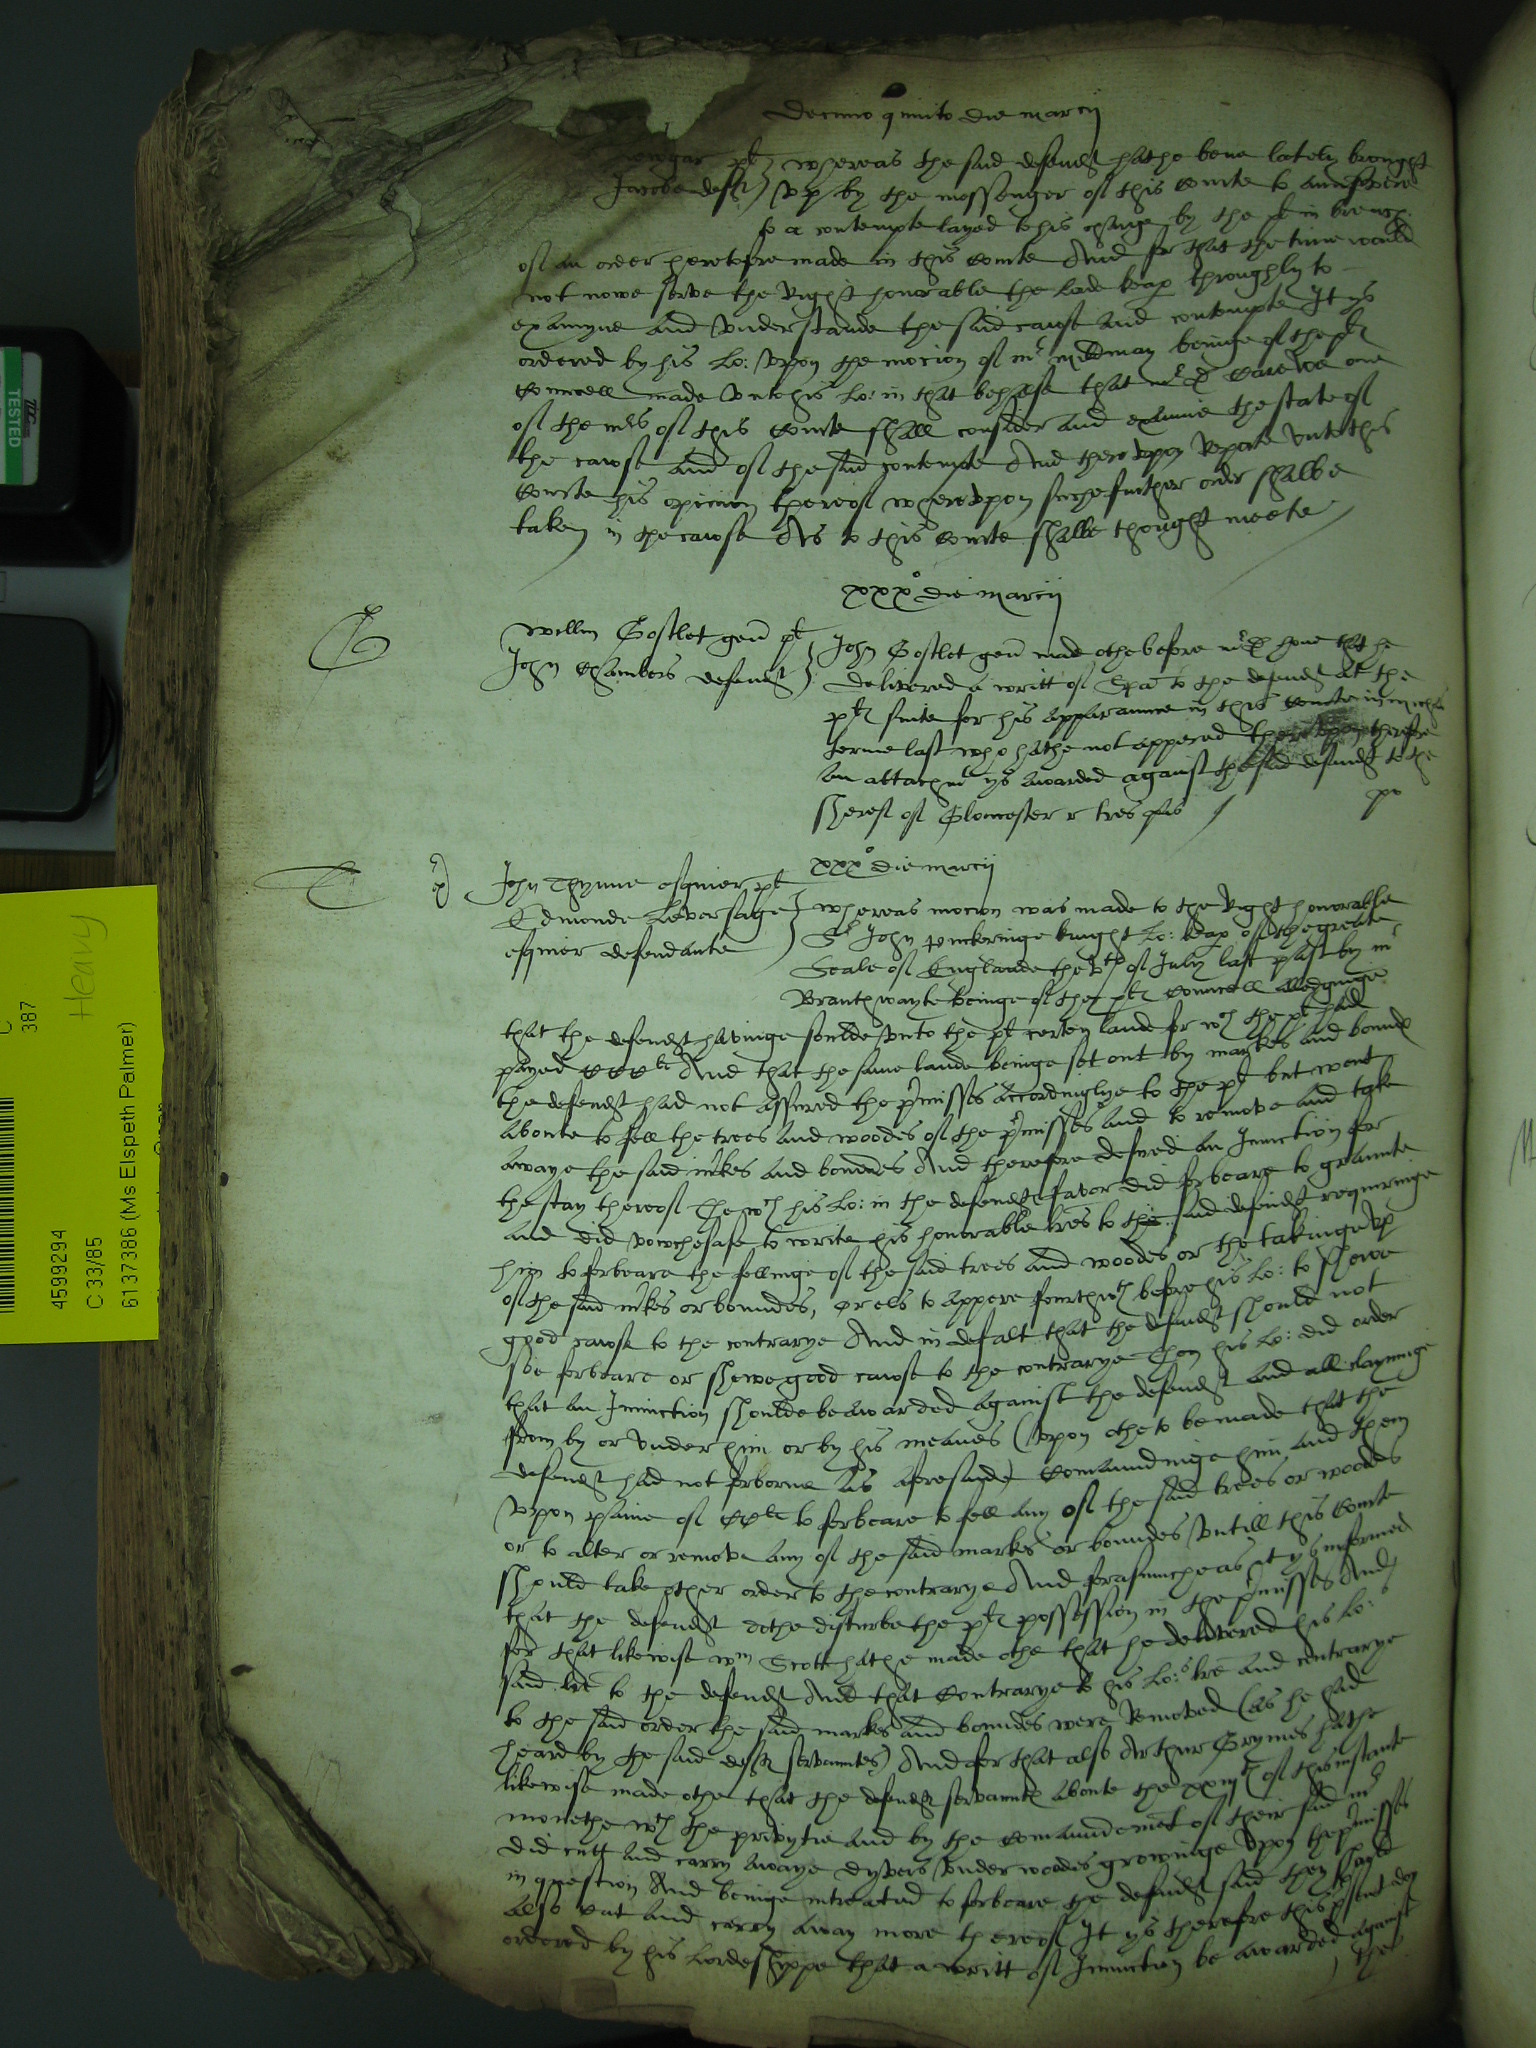 Decimo quinto die marcij
plt whereas the said defendt hathe bene lately brought
Jacobe deft vp by the messenger of this Courte to aunswere
to a contempte layed to his charge by the plt in breach
of an order heretofore made in this Courte And for that the time would
not nowe serve the Right honorable the Lorde keap throughly to
examyne and vnderstande the said cause and contempte It ys
ordered by his Lo: vpon the mocion of mr mildmay beinge of the plts
Councell made vnto his Lo: in that behalfe that mr D Carewe one
of the mrs of this Courte shall consider and examine the state of
the cawse and of the said contempte And therevpon Reporte vnto this
Courte his opinion thereof wherevpon suche further order shalbe
taken in the cawse As to this Courte shalbe thought meete
xxxo die marcij
Willm Gostlet gen plt
John Chambers defendt
John Gostlet gen made othe before mr D hone that he
delivered a writt of Spa to the defendt at the
plts suite for his apparaunce in this Courte in mich
terme last who hathe not appered therevpon therefore
an attachmt ys awarded against the said defendt to the
Sheref of Glocester r tres pas
po
xxxo die marcij
John Thynne esquier plt
Edmonde Leversage
esquier defendante
whereas mocion was made to the Right honorable
Sr John Puckeringe knight Lo: keap of the greate
Seale of Englande the vth of July last past by mr
Branthwayte beinge of the plts Councell alledginge
that the defendt havinge soulde vnto the plt certen lande for wch the plt had
payed CCCli And that the same lande beinge set out by markes and bounds
the defendt had not assured the pmisses accordinglye to the plt but went
aboute to fell the trees and woodes of the pmisses and to remove and take
awaye the said mkes and boundes And therefore desired an Iniunction for
the stay thereof The wch his Lo: in the defendts favor did forbeare to graunte
and did vowchesafe to write his honorable lres to the said defendt requiringe
him to forbeare the fellinge of the said trees and woodes or the takinge vp
of the said mkes or boundes, or els to appere fourthwth before his Lo: to showe
good cawse to the contrarye And in defalt that the defendt should not
soe forbeare or shewe good cawse to the contrarye Then his Lo: did order
that an Iniunction shoulde be awarded against the defendt and all clayminge
from by or vnder him or by his meanes (vpon othe to be made that the
defendt had not forborne as aforesaide) Comaundinge him and them
vpon paine of CCli to forbeare to fell any of the said trees or woodes
or to alter or remove any of the said markes or boundes vntill this Courte
should take other order to the contrarye And forasmuche as it ys informed
that the defendt dothe disturbe the plts possession in the pmisses And
for that likewise Wm Scott hathe made othe that he delivered his Lo:
said lre to the defendt And that Contrarye to his Lo:s lre and contrarye
to the said order the said markes and boundes were Removed (as he had
heard by the said defts servauntes) And for that also Arthur Grymes hathe
likewise made othe that the defendts servaunts aboute the xxiijth of this instante
monethe wth the privytie and by the comaundemet of their said mr
did cutt and carry awaye dyvers vnderwoodes growinge vpon the pmisses
in question And beinge intreated to forbeare the defendt said they should
also cut and carry away more thereof It ys therefore this psent day
ordered by his Lordeshippe that a writt of Iniunction be awarded against
the
TESTED
C
387
Heavy
4599294
C 33/85
61137386 (Ms Elspeth Palmer)